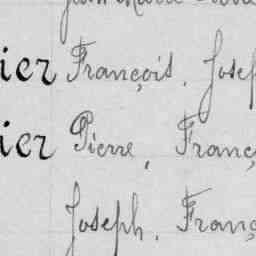 Jean Marie
ier François, Josep
ier Pierre, Franç
Joseph, Franç